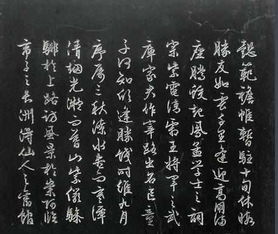 懿範襜帷暫駐十旬休暇
勝友如雲千里逢迎高朋滿
座騰蛟起鳳孟學士之詞
宗紫電清霜王將軍之武
庫家君作宰路出名區童
子何知躬逢勝餞時維九月
序屬三秋潦水盡而寒潭
清煙光凝而暮山紫儼驂
騑於上路訪風景於崇阿臨
帝子之長洲得仙人之舊館